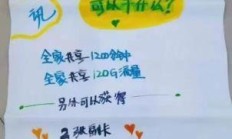 可以干什么?
全家共享1200分钟
全家共享120G流量
另外可以获得
2张副卡